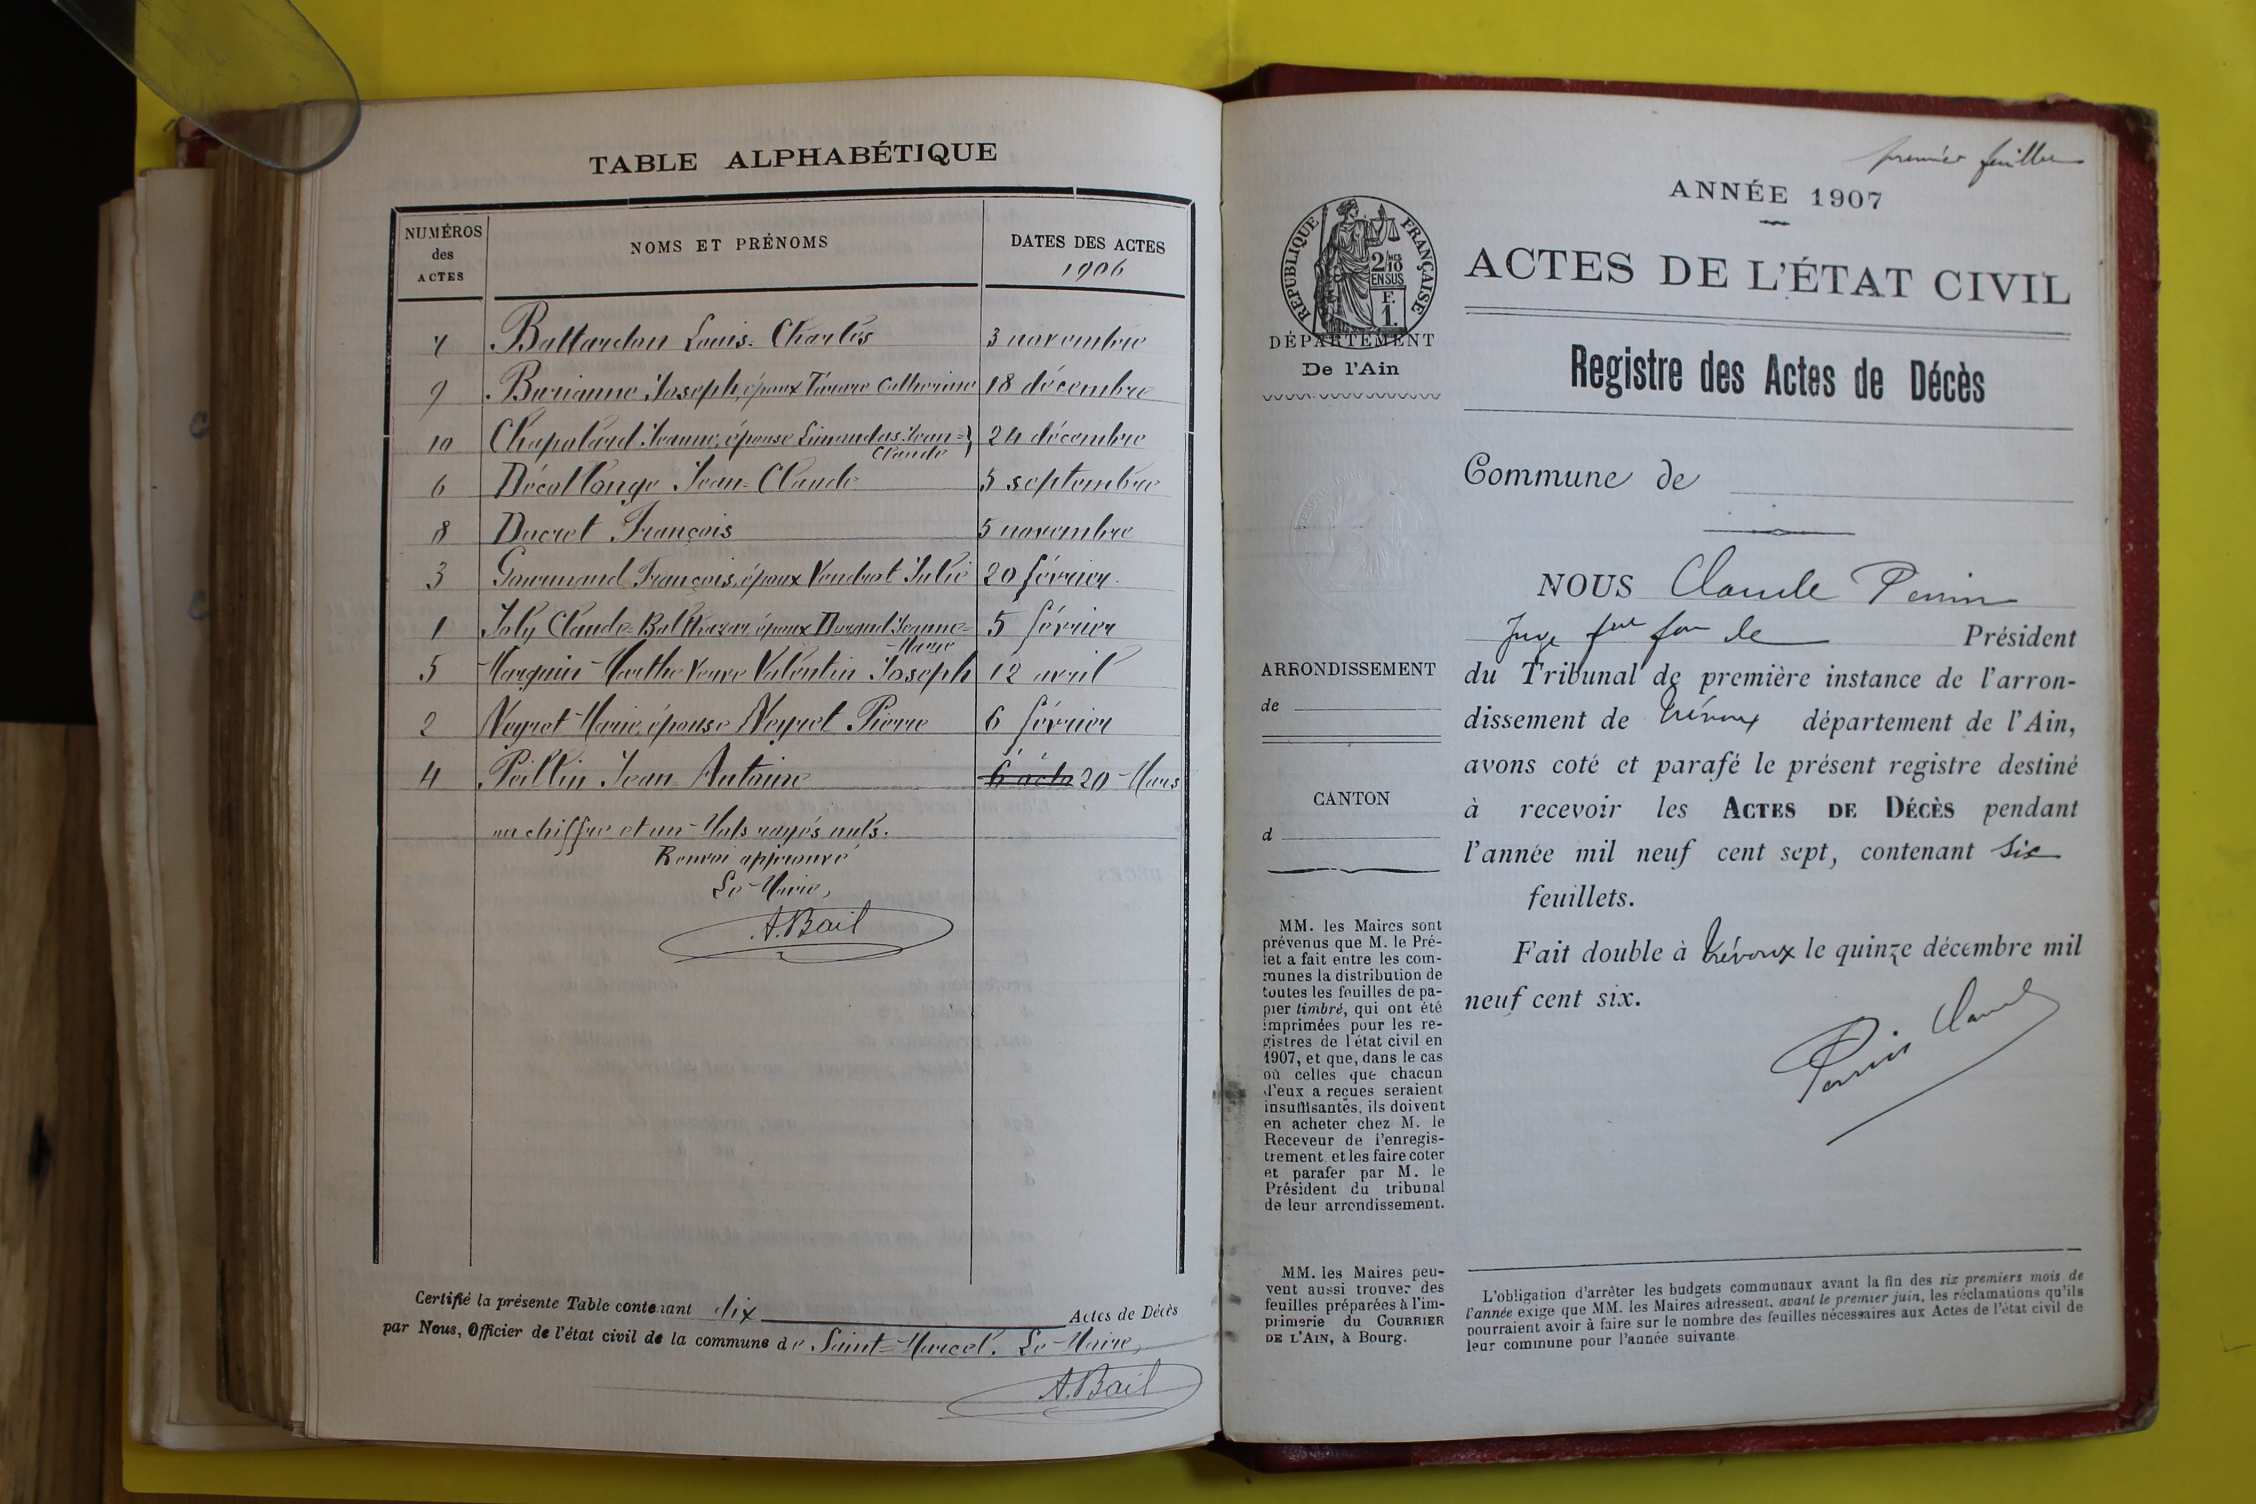 TABLE ALPHABÉTIQUE
NUMÉROS
des
ACTES
NOMS ET PRÉNOMS
DATES DES ACTES
1906
7 Battardon Louis-Charles 3 novembre
9 Burianne Joseph, époux Catherine 18 décembre
10 Chapolard Jeanne, épouse Limandas Jean-
Claude 24 décembre
6 Décollonge Jean-Claude 5 septembre
8 Ducret François 5 novembre
3 Gourmand François, époux Vendrot Julie 20 février
1 Joly Claude-Balthazar époux Durand Jeanne-
Marie 5 février
5 Marguin Marthe veuve Valentin Joseph 12 avril
2 Neyret Marie, épouse Neyret Pierre 6 février
4 Peillin Jean-Antoine 20 Mars
un chiffre et un Mots rayés nuls.
Renvoi approuvé
Le Maire,
A. Bail
Certifié la présente Table contenant dix Actes de Décès
par Nous, Officier de l'état civil de la commune de Saint-Marcel. Le Maire,
A. Bail
premier feuillet
ANNÉE 1907
ACTES DE L'ÉTAT CIVIL
RÉPUBLIQUE FRANÇAISE
2/10
EN SUS
F.
1.
DÉPARTEMENT
De l'Ain
Registre des Actes de Décès
Commune de
NOUS Claude Perrin
Juge fon de Président
du Tribunal de première instance de l'arron-
dissement de Trévoux département de l'Ain,
avons coté et parafé le présent registre destiné
à recevoir les ACTES DE DÉCÈS pendant
l'année mil neuf cent sept, contenant six
feuillets.
Fait double à Trévoux le quinze décembre mil
neuf cent six.
Perrin Claude
ARRONDISSEMENT
de
CANTON
d
MM. les Maires sont
prévenus que M. le Pré-
fet a fait entre les com-
munes la distribution de
toutes les feuilles de pa-
pier timbré, qui ont été
imprimées pour les re-
gistres de l'état civil en
1907, et que, dans le cas
où celles que chacun
d'eux a reçues seraient
insuffisantes, ils doivent
en acheter chez M. le
Receveur de l'enregis-
trement et les faire coter
et parafer par M. le
Président du tribunal
de leur arrondissement.
MM. les Maires peu-
vent aussi trouver des
feuilles préparées à l'im-
primerie du COURRIER
DE L'AIN, à Bourg.
L'obligation d'arrêter les budgets communaux avant la fin des six premiers mois de
l'année exige que MM. les Maires adressent, avant le premier juin, les réclamations qu'ils
pourraient avoir à faire sur le nombre des feuilles nécessaires aux Actes de l'état civil de
leur commune pour l'année suivante.